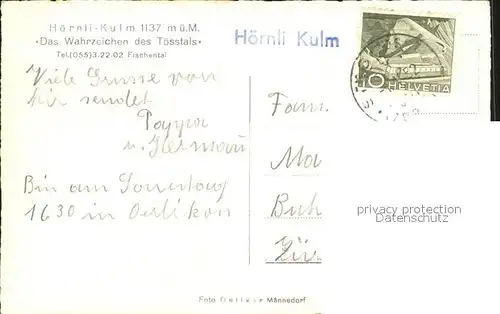 Hörnli-Kulm 1137 m ü.M.
•Das Wahrzeichen des Tösstals•
Tel.(055)3.22.02 Fischental
Hörnli Kulm
10
HELVETIA
Viele Grüsse von
hir sendet
Pappa
u. Hermann
Bin am Sonnentag
1630 in Oerlikon
Fam.
Ma
Buh
Zür
privacy protection
Datenschutz
Foto Männedorf